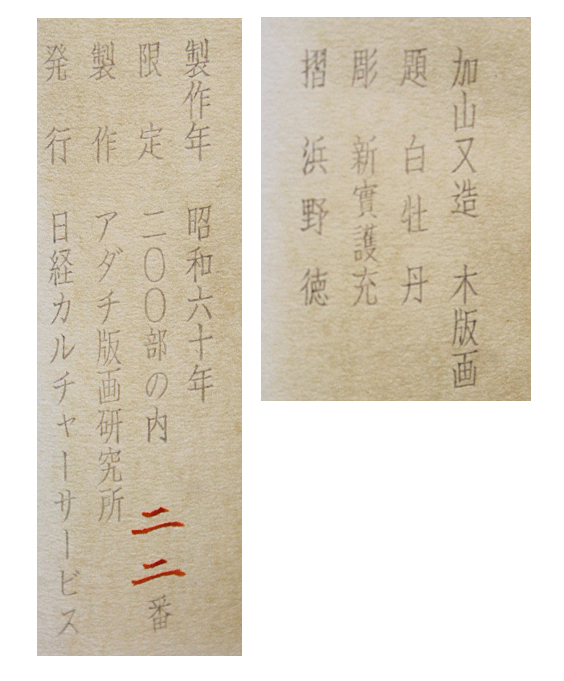 加山又造　木版画
題　白牡丹
彫　新實護充
摺　浜野徳
製作年　昭和六十年
限定　二〇〇部の内　二二番
製作　アダチ版画研究所
発行　日経カルチャーサービス